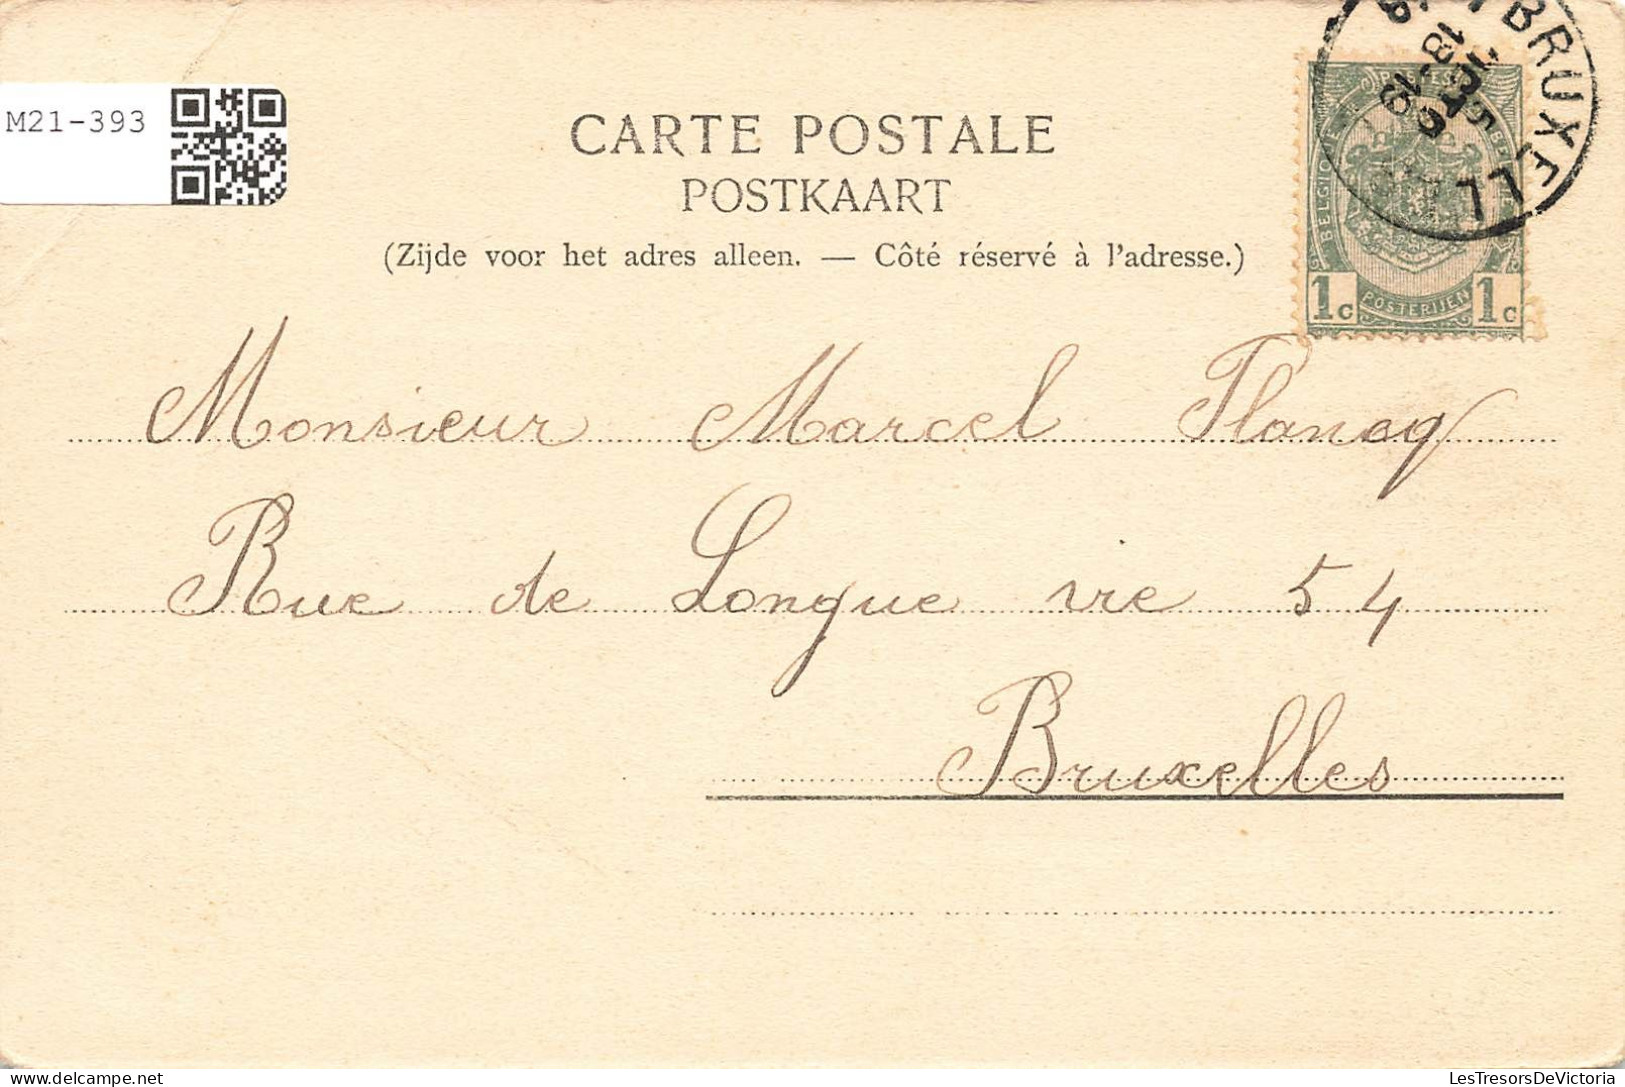 M21-393
CARTE POSTALE
POSTKAART
(Zijde voor het adres alleen. — Côté réservé à l'adresse.)
BRUXELL
BELGIQUE
1c POSTERIJEN 1c
Monsieur Marcel Plancq
Rue de Longue vie 54
Bruxelles
LesTresorsDeVictoria